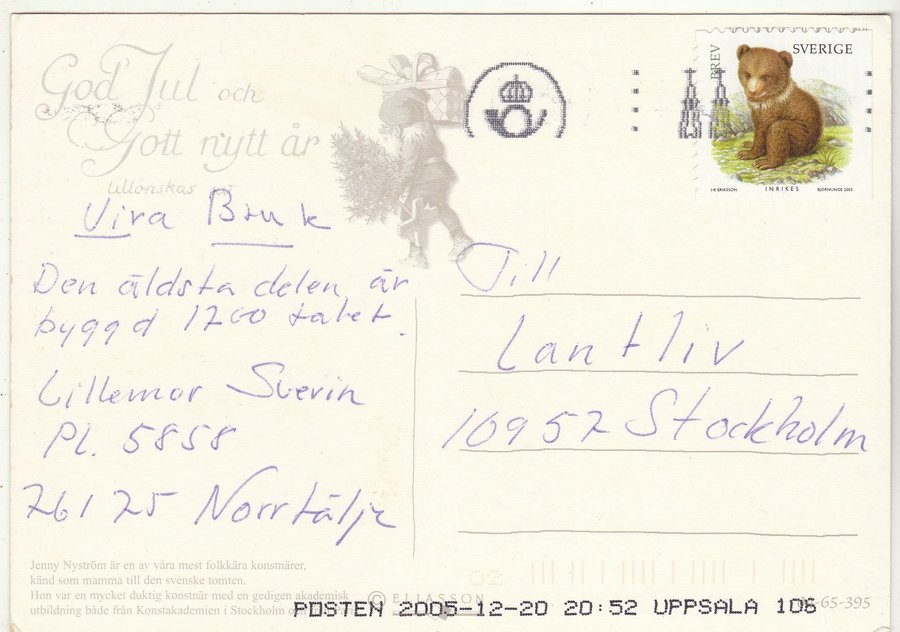 God Jul och
Gott nytt år
tillönskas
Vira Bruk
Den äldsta delen är
byggd 1700 talet.
Lillemor Sverin
Pl. 5858
76125 Norrtälje
Jenny Nyström är en av våra mest folkkära konstnärer,
känd som mamma till den svenske tomten.
Hon var en mycket duktig konstnär med en gedigen akademisk
utbildning både från Konstakademien i Stockholm och
BREV
SVERIGE
I-K ERIKSSON INRIKES BJÖRNUNGE 2005
Till
Lantliv
10957 Stockholm
02
© ELIASSON
POSTEN 2005-12-20 20:52 UPPSALA 106
-65-395